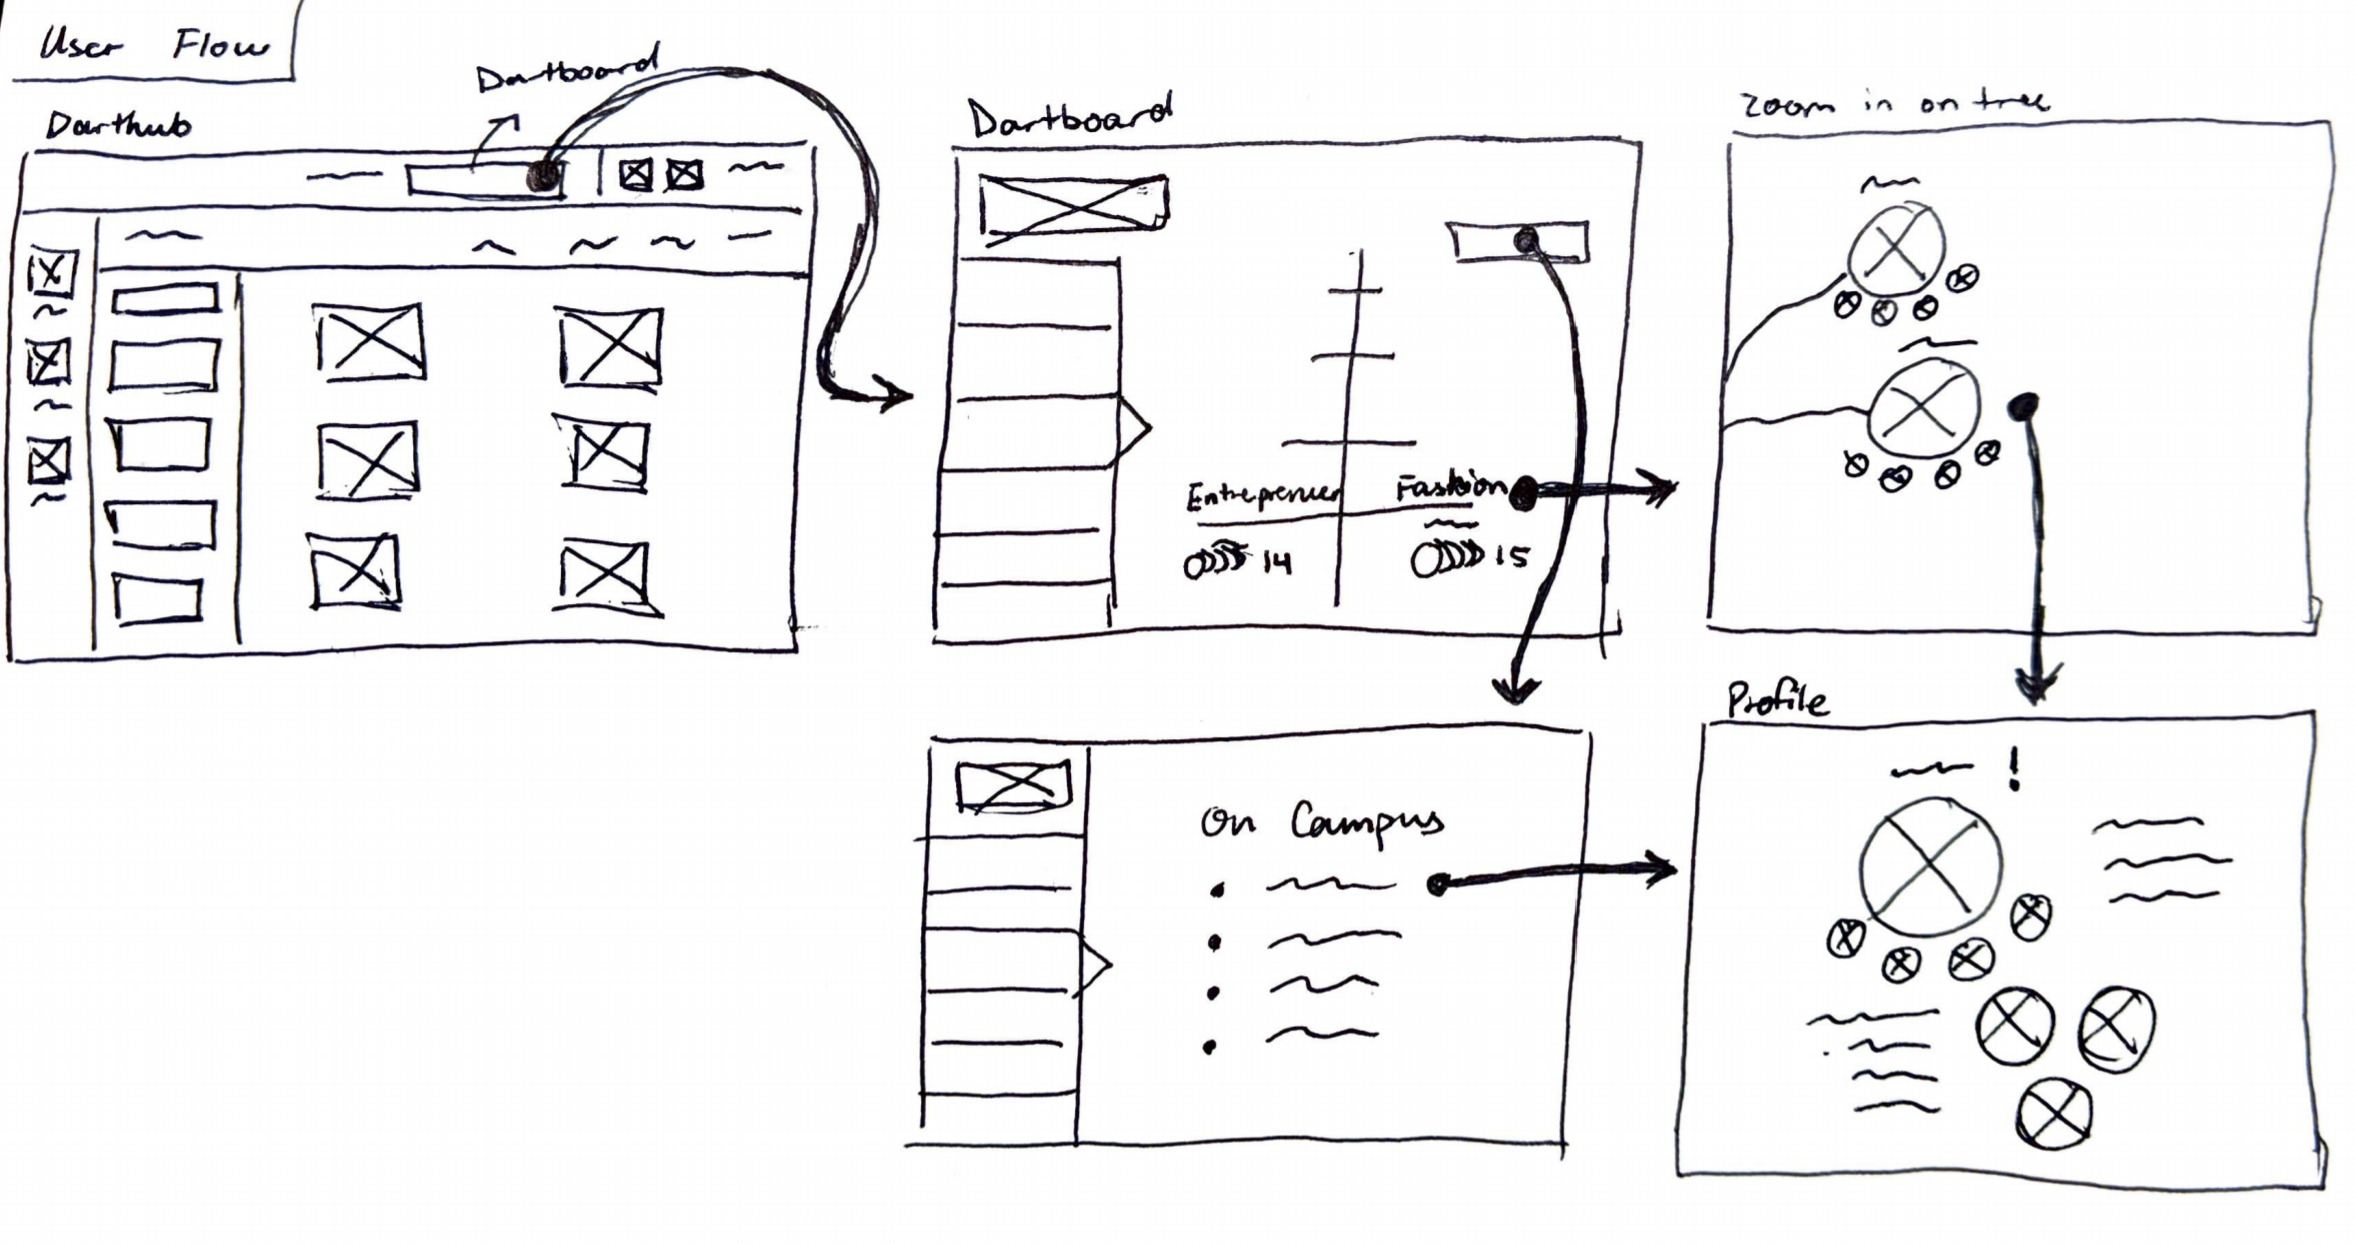 User Flow
Dartboard
Darthub
Dartboard
Entreprenuer
Fashion
14
15
Zoom in on tree
On Campus
Profile
!